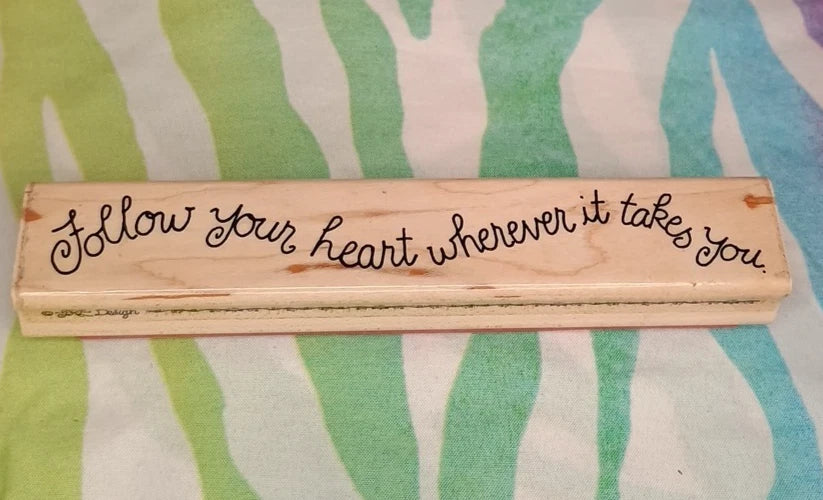 Follow your heart wherever it takes you.
Design